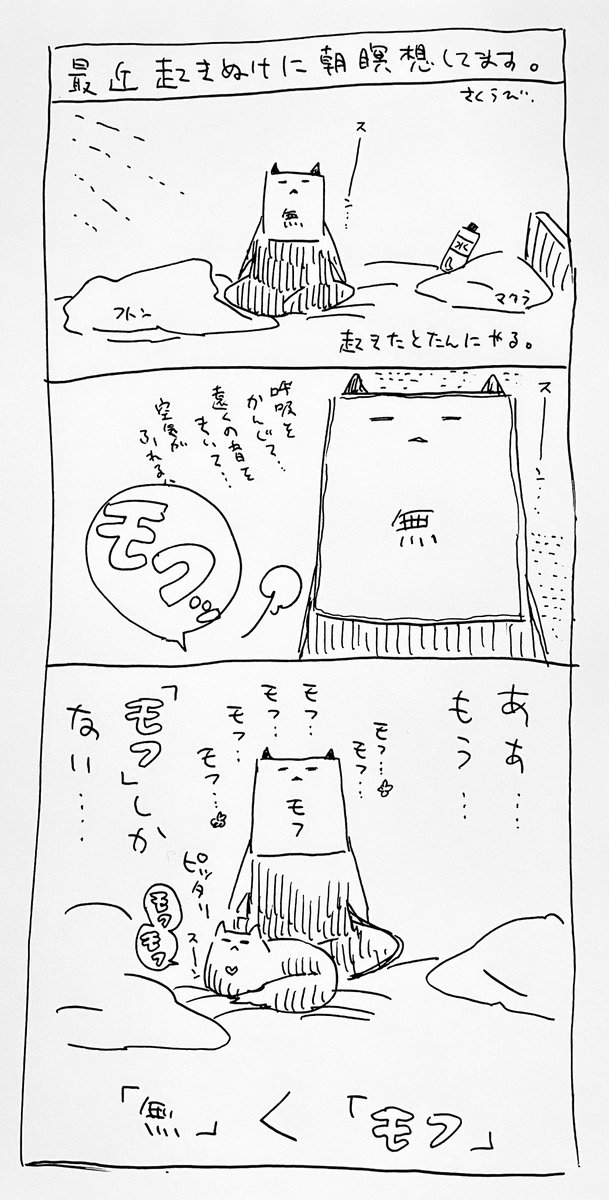 最近起きぬけに朝瞑想してます。
さくらび.
スーン…
無
水
フトン
マクラ
起きたとたんにやる。
スーン…
呼吸を
かんじて…
遠くの音を
きいて…
空気が
ふれるに
無
モフッ
ああ…
もう…
モフ…
モフ…
モフ…
モフ…
モフ…
モフ…
「モフ」しか
ない…
モフ
ピッタリ
スーン
モフ
モフ
「無」く「モフ」